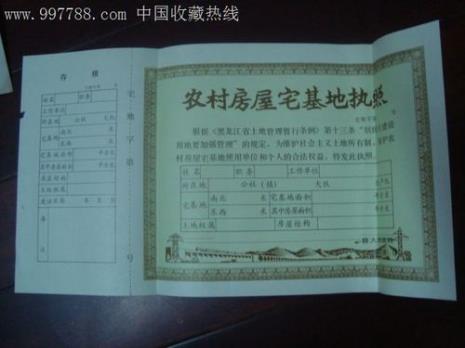 www.997788.com 中国收藏热线
存根
姓名 职务
工作单位
所在地 公社 大队
宅基地 南北 米
东西 米
宅基地面积
其中房屋面积
房屋结构
土地权属
年 月 日
备
注
宅地字第 号
农村房屋宅基地执照
根据《黑龙江省土地管理暂行条例》第十三条
用地更加强管理”的规定，为维护社会主义土地所有制，保护农
村房屋宅基地使用单位和个人的合法权益，特发此执照。
姓名 职务 工作单位
所在地 公社（镇） 大队
宅基地 南北 米 宅基地面积
东西 米 其中房屋面积
土地权属 房屋结构